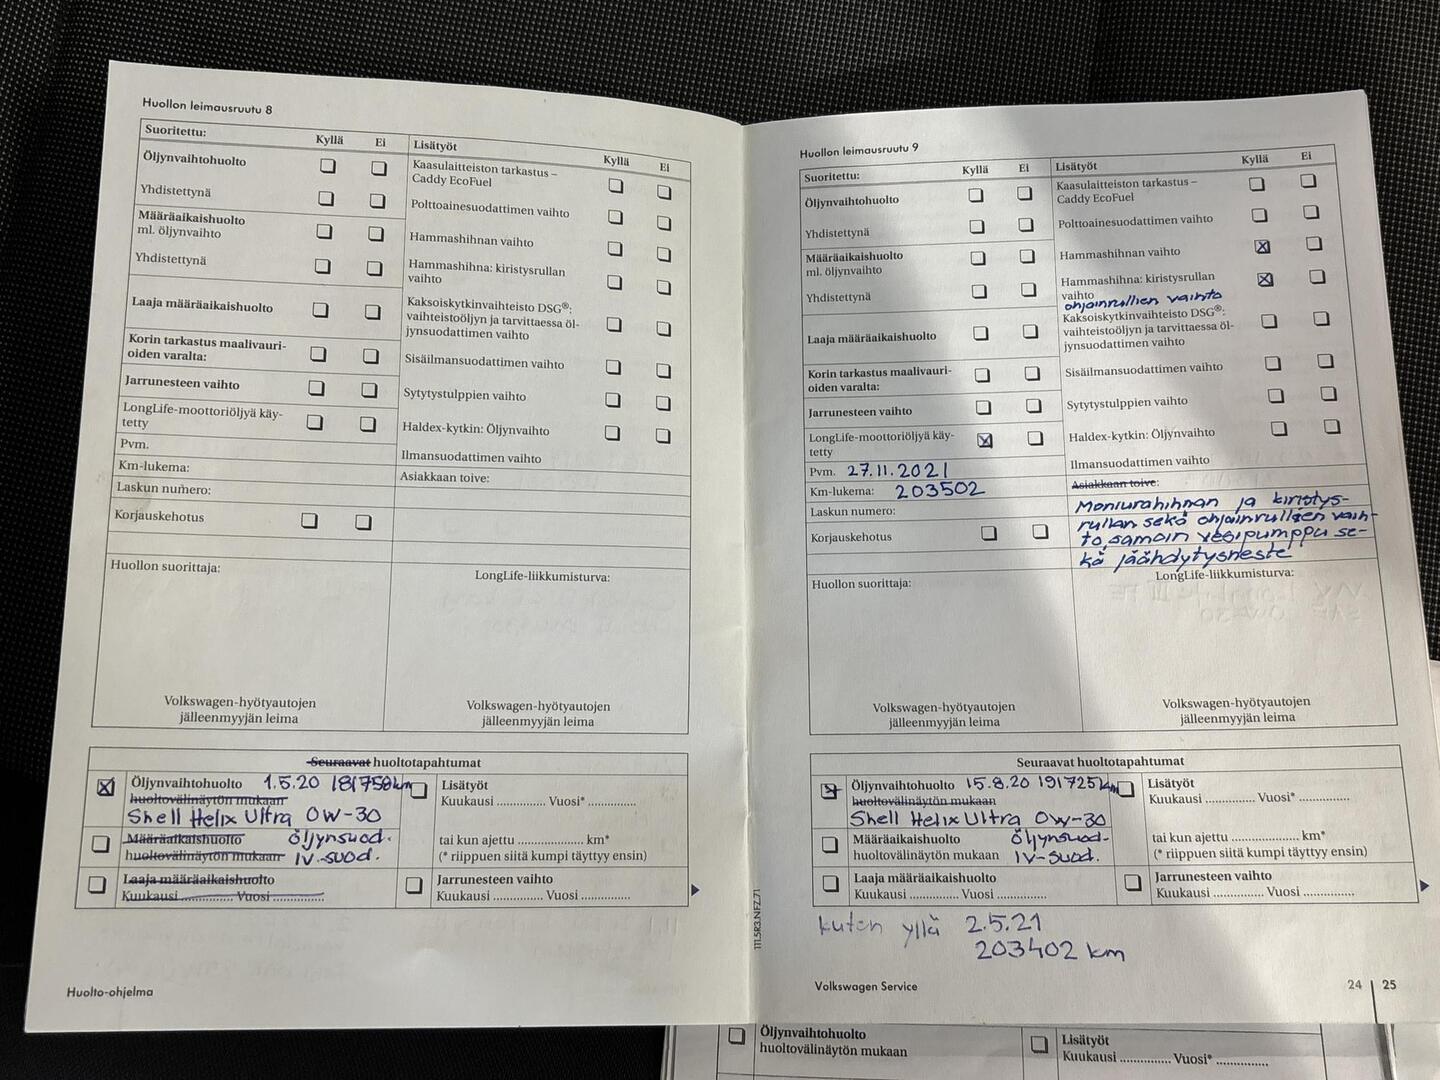 Huollon leimausruutu 8
Suoritettu: Kyllä Ei
Öljynvaihtohuolto
Yhdistettynä
Määräaikaishuolto
ml. öljynvaihto
Yhdistettynä
Laaja määräaikaishuolto
Korin tarkastus maalivauri-
oiden varalta:
Jarrunesteen vaihto
LongLife-moottoriöljyä käy-
tetty
Pvm.
Km-lukema:
Laskun numero:
Korjauskehotus
Huollon suorittaja:
Volkswagen-hyötyautojen
jälleenmyyjän leima
Lisätyöt Kyllä Ei
Kaasulaitteiston tarkastus –
Caddy EcoFuel
Polttoainesuodattimen vaihto
Hammashihnan vaihto
Hammashihna: kiristysrullan
vaihto
Kaksoiskytkinvaihteisto DSG®:
vaihteistoöljyn ja tarvittaessa öl-
jynsuodattimen vaihto
Sisäilmansuodattimen vaihto
Sytytystulppien vaihto
Haldex-kytkin: Öljynvaihto
Ilmansuodattimen vaihto
Asiakkaan toive:
LongLife-liikkumisturva:
Volkswagen-hyötyautojen
jälleenmyyjän leima
Seuraavat huoltotapahtumat
Öljynvaihtohuolto 1.5.20 181758km
huoltovälinäytön mukaan
Shell Helix Ultra 0W-30
Määräaikaishuolto öljynsuod.
huoltovälinäytön mukaan IV-suod.
Laaja määräaikaishuolto
Kuukausi .............. Vuosi ..............
Lisätyöt
Kuukausi .............. Vuosi* ..............
tai kun ajettu ...................... km*
(* riippuen siitä kumpi täyttyy ensin)
Jarrunesteen vaihto
Kuukausi .............. Vuosi ..............
Huolto-ohjelma
Huollon leimausruutu 9
Suoritettu: Kyllä Ei
Öljynvaihtohuolto
Yhdistettynä
Määräaikaishuolto
ml. öljynvaihto
Yhdistettynä
Laaja määräaikaishuolto
Korin tarkastus maalivauri-
oiden varalta:
Jarrunesteen vaihto
LongLife-moottoriöljyä käy-
tetty
Pvm. 27.11.2021
Km-lukema: 203502
Laskun numero:
Korjauskehotus
Huollon suorittaja:
Volkswagen-hyötyautojen
jälleenmyyjän leima
Lisätyöt Kyllä Ei
Kaasulaitteiston tarkastus –
Caddy EcoFuel
Polttoainesuodattimen vaihto
Hammashihnan vaihto
Hammashihna: kiristysrullan
vaihto
ohjainrullien vaihto
Kaksoiskytkinvaihteisto DSG®:
vaihteistoöljyn ja tarvittaessa öl-
jynsuodattimen vaihto
Sisäilmansuodattimen vaihto
Sytytystulppien vaihto
Haldex-kytkin: Öljynvaihto
Ilmansuodattimen vaihto
Asiakkaan toive:
Moniurahihnan ja kiristys-
rullan sekä ohjainrullien vaih-
to, samoin vesipumppu se-
kä jäähdytysneste
LongLife-liikkumisturva:
Volkswagen-hyötyautojen
jälleenmyyjän leima
Seuraavat huoltotapahtumat
Öljynvaihtohuolto 15.8.20 191725km
huoltovälinäytön mukaan
Shell Helix Ultra 0W-30
Määräaikaishuolto öljynsuod-
huoltovälinäytön mukaan IV-suod.
Laaja määräaikaishuolto
Kuukausi .............. Vuosi ..............
Lisätyöt
Kuukausi .............. Vuosi* ..............
tai kun ajettu ...................... km*
(* riippuen siitä kumpi täyttyy ensin)
Jarrunesteen vaihto
Kuukausi .............. Vuosi ..............
kuten yllä 2.5.21
203402 km
111.5R3.NFZ.71
Volkswagen Service
24 25
Öljynvaihtohuolto
huoltovälinäytön mukaan
Lisätyöt
Kuukausi .............. Vuosi* ..............